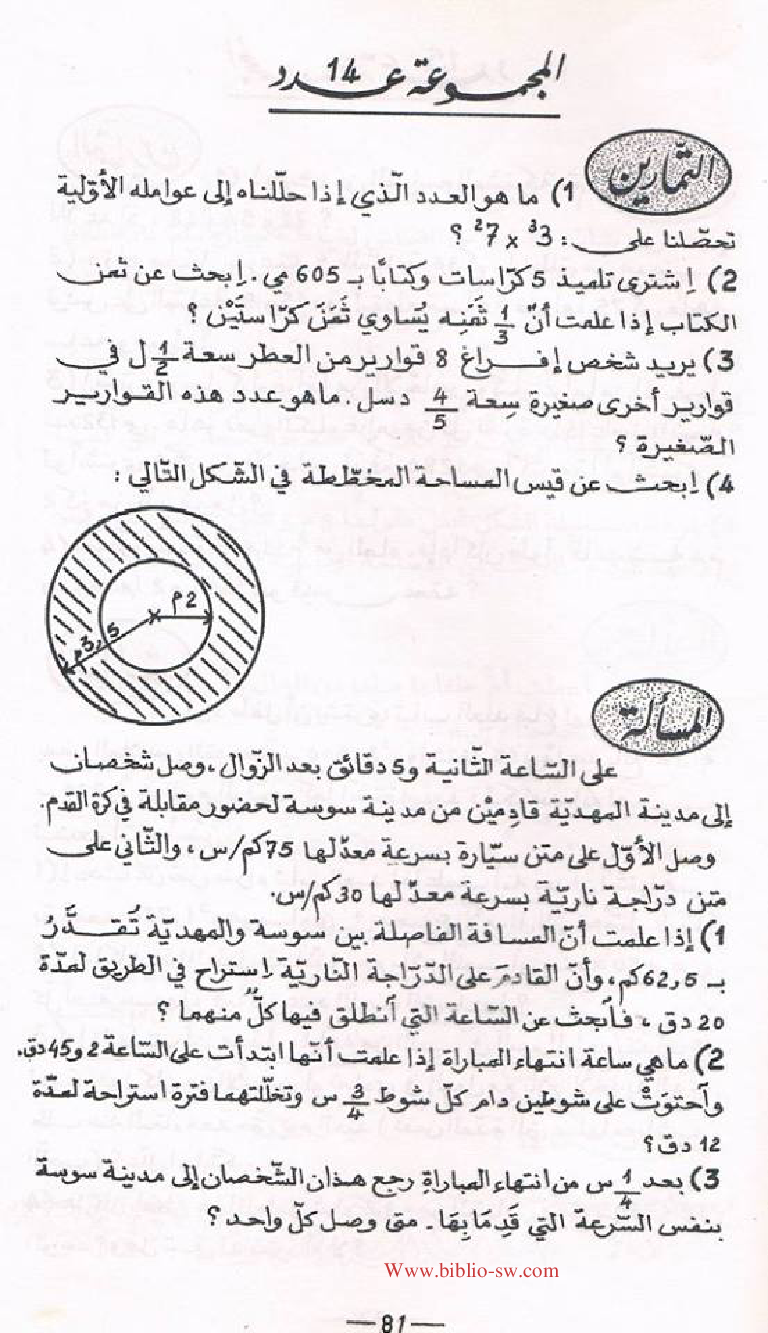 المجموعة عدد 14
التّمارين
1) ما هو العدد الّذي إذا حلّلناه إلى عوامله الأوّلية
تحصّلنا على : 3³ × 7² ؟
2) اِشترى تلميذ 5 كرّاسات وكتابًا بـ 605 مي. اِبحث عن ثمن
الكتاب إذا علمت أنّ 1/3 ثَمَنِه يُساوي ثَمَنَ كَرّاستَيْن ؟
3) يريد شخص إفراغ 8 قوارير من العطر سعة 1/2 ل في
قوارير أخرى صغيرة سِعة 4/5 دسل. ماهو عدد هذه القوارير
الصّغيرة ؟
4) اِبحث عن قيس المساحة المخطّطة في الشّكل التّالي :
2 م
3,5 م
المسألة
على السّاعة الثّانية و5 دقائق بعد الزّوال، وصل شخصان
إلى مدينة المهديّة قادِميْن من مدينة سوسة لحضور مقابلة في كرة القدم.
وصل الأوّل على متن سيّارة بسرعة معدّلها 75 كم/س، والثّاني على
متن درّاجة ناريّة بسرعة معدّلها 30 كم/س.
1) إذا علمت أنّ المسافة الفاصلة بين سوسة والمهديّة تُقدَّرُ
بـ 62,5 كم، وأنّ القادم على الدّرّاجة النّاريّة اِستراح في الطّريق لمدّة
20 دق، فٱبحث عن السّاعة الّتي ٱنطلق فيها كلّ منهما ؟
2) ما هي ساعة انتهاء المباراة إذا علمت أنّها ابتدأت على السّاعة 2 و45 دق.
وٱحتوَتْ على شوطين دام كلّ شوط 3/4 س وتخلّلتهما فترة استراحة لمدّة
12 دق؟
3) بعد 1/4 س من انتهاء المباراةِ رجع هذان الشّخصان إلى مدينة سوسة
بنفس السّرعة التي قَدِمَا بِهَا. متى وصل كلّ واحد ؟
Www.biblio-sw.com
—81—